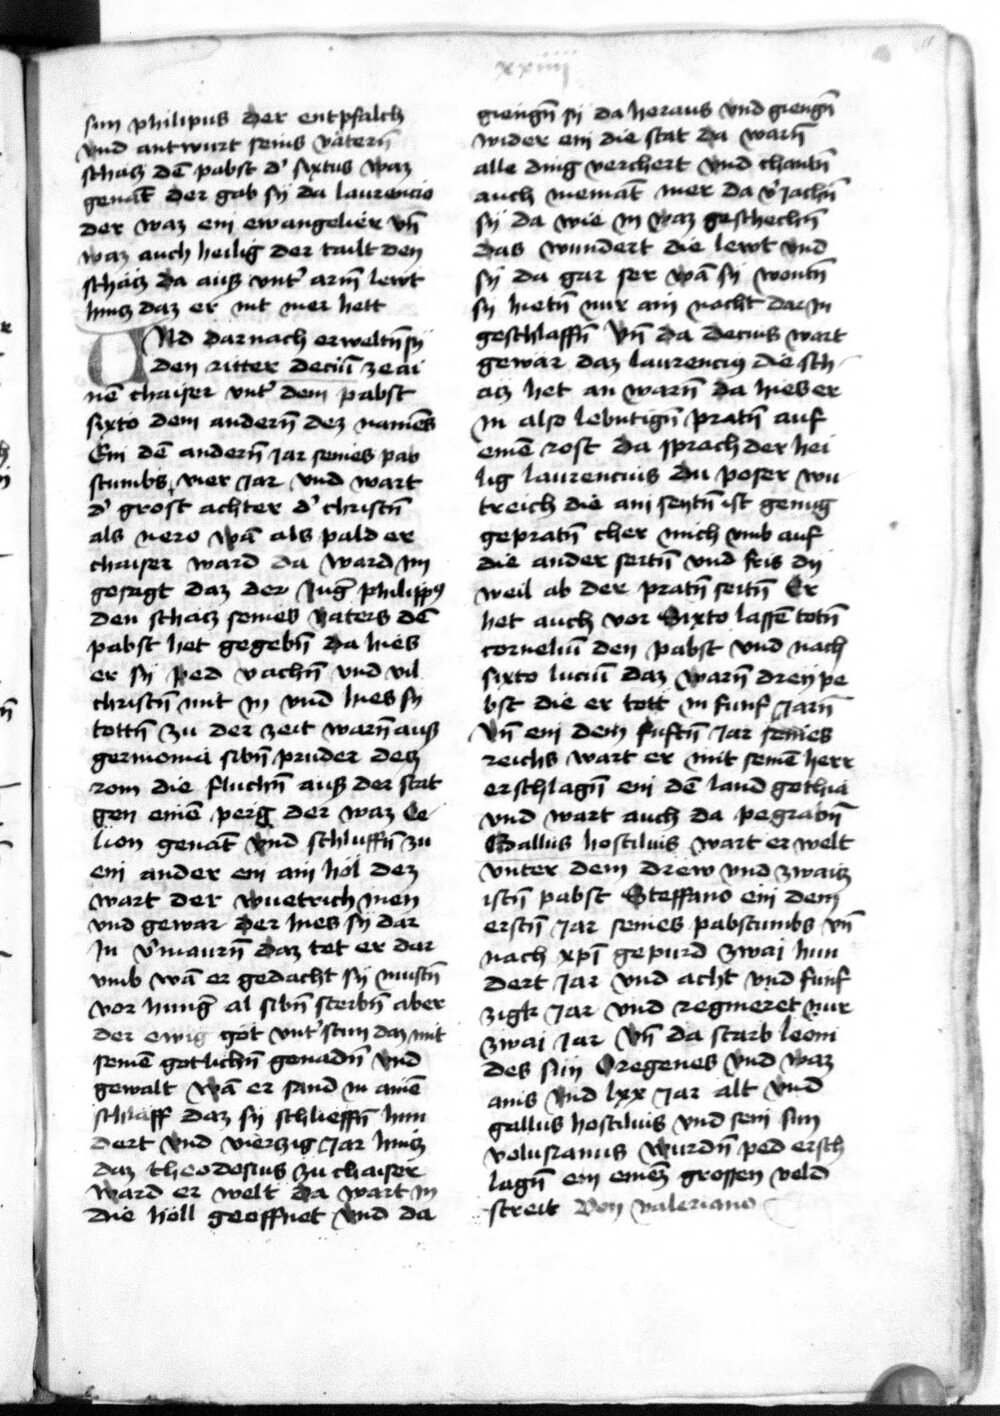 xxiiij
sun philipus der entpfalch
vnd antwurt seins vatern̄
schacz dē pabst d' sixtus waz
genāt der gab sÿ da laurencio
der waz ein ewangelier vn̄
waz auch heilig der tailt den
schacz da aus vnt' arm̄ lewt
hincz daz er nit mer hett
Vnd darnach erweltn̄ sÿ
den ritter deciū ze ai
nē chaiser vnt' dem pabst
sixto dem andern̄ dez namēs
Ein dē andern̄ Jar seines pab
stumbs vier Jar vnd wart
d' grost achter d' christn̄
als nero wā als pald er
chaiser ward da ward im
gesagt daz der Jūg philippus
den schacz seines vaters dē
pabst het gegebn̄ da hies
er sÿ ped vachn̄ vnd vil
christn̄ mit in vnd hies sÿ
tottn̄ zu der zeit warn̄ aus
germonia sibn̄ pruder dez
rom die fluchn̄ aus der stat
gen einē perg der waz Ce
lion genāt vnd schluffn̄ zu
ein ander ein ain hol dez
wart der wuetrich inen
vnd gewar der hies sÿ dar
In v'maurn̄ daz tet er dar
vmb wā er gedacht sÿ mustn̄
vor hung' al sibn̄ sterbn̄ aber
der ewig got vnt'stun daz mit
seinē gotlichn̄ genadn̄ vnd
gewalt wā er sand in ainē
schlaff daz sÿ schlieffn̄ hun
dert vnd vierczig Jar hincz
daz theodosius zu chaiser
ward er welt da wart in
die höll geoffnet vnd da
giengn̄ si da heraus vnd giengn̄
wider ein die stat da warn̄
alle ding verchert vnd chantn̄
auch niemāt mer da v'Jachn̄
sÿ da wie in waz geschechn̄
das wundert die lewt vnd
sÿ da gar ser wā sÿ wontn̄
sÿ hietn̄ nur ain nacht dar In
geschlaffn̄ Vn̄ da decius wart
gewar daz laurencius die sch
acz het an warn̄ da hies er
in also lebntign̄ pratn̄ auf
einē rost da sprach der hei
lig laurencius du poser wu
treich die ain seytn̄ ist genug
gepratn̄ cher mich vmb auf
die ander seitn̄ vnd fris dy
weil ab der pratn̄ seitn̄ Er
het auch vor Sixto lassē totn̄
corneliū den pabst vnd nach
sixto luciū daz warn̄ dreÿ pe
bst die er tott in funf Jarn̄
Vn̄ ein dem fuftn̄ Jar seines
reichs wart er mit seinē herr
erschlagn̄ ein dē land gothia
vnd wart auch da pegrabn̄
Gallus hostilius wart er welt
vnter dem drew vnd zwaicz
istn̄ pabst Steffano ein dem
erstn̄ Jar seines pabstumbs vn̄
nach xp̄i gepurd zwai hun
dert Jar vnd acht vnd funf
zigk Jar vnd regnieret nur
zwai Jar Vn̄ da starb leoni
des sun Oregenes vnd waz
ains vnd lxx Jar alt vnd
gallus hostilius vnd sein sun
volusianus wurdn̄ ped ersch
lagn̄ ein einez grossen veld
streit Von valeriano